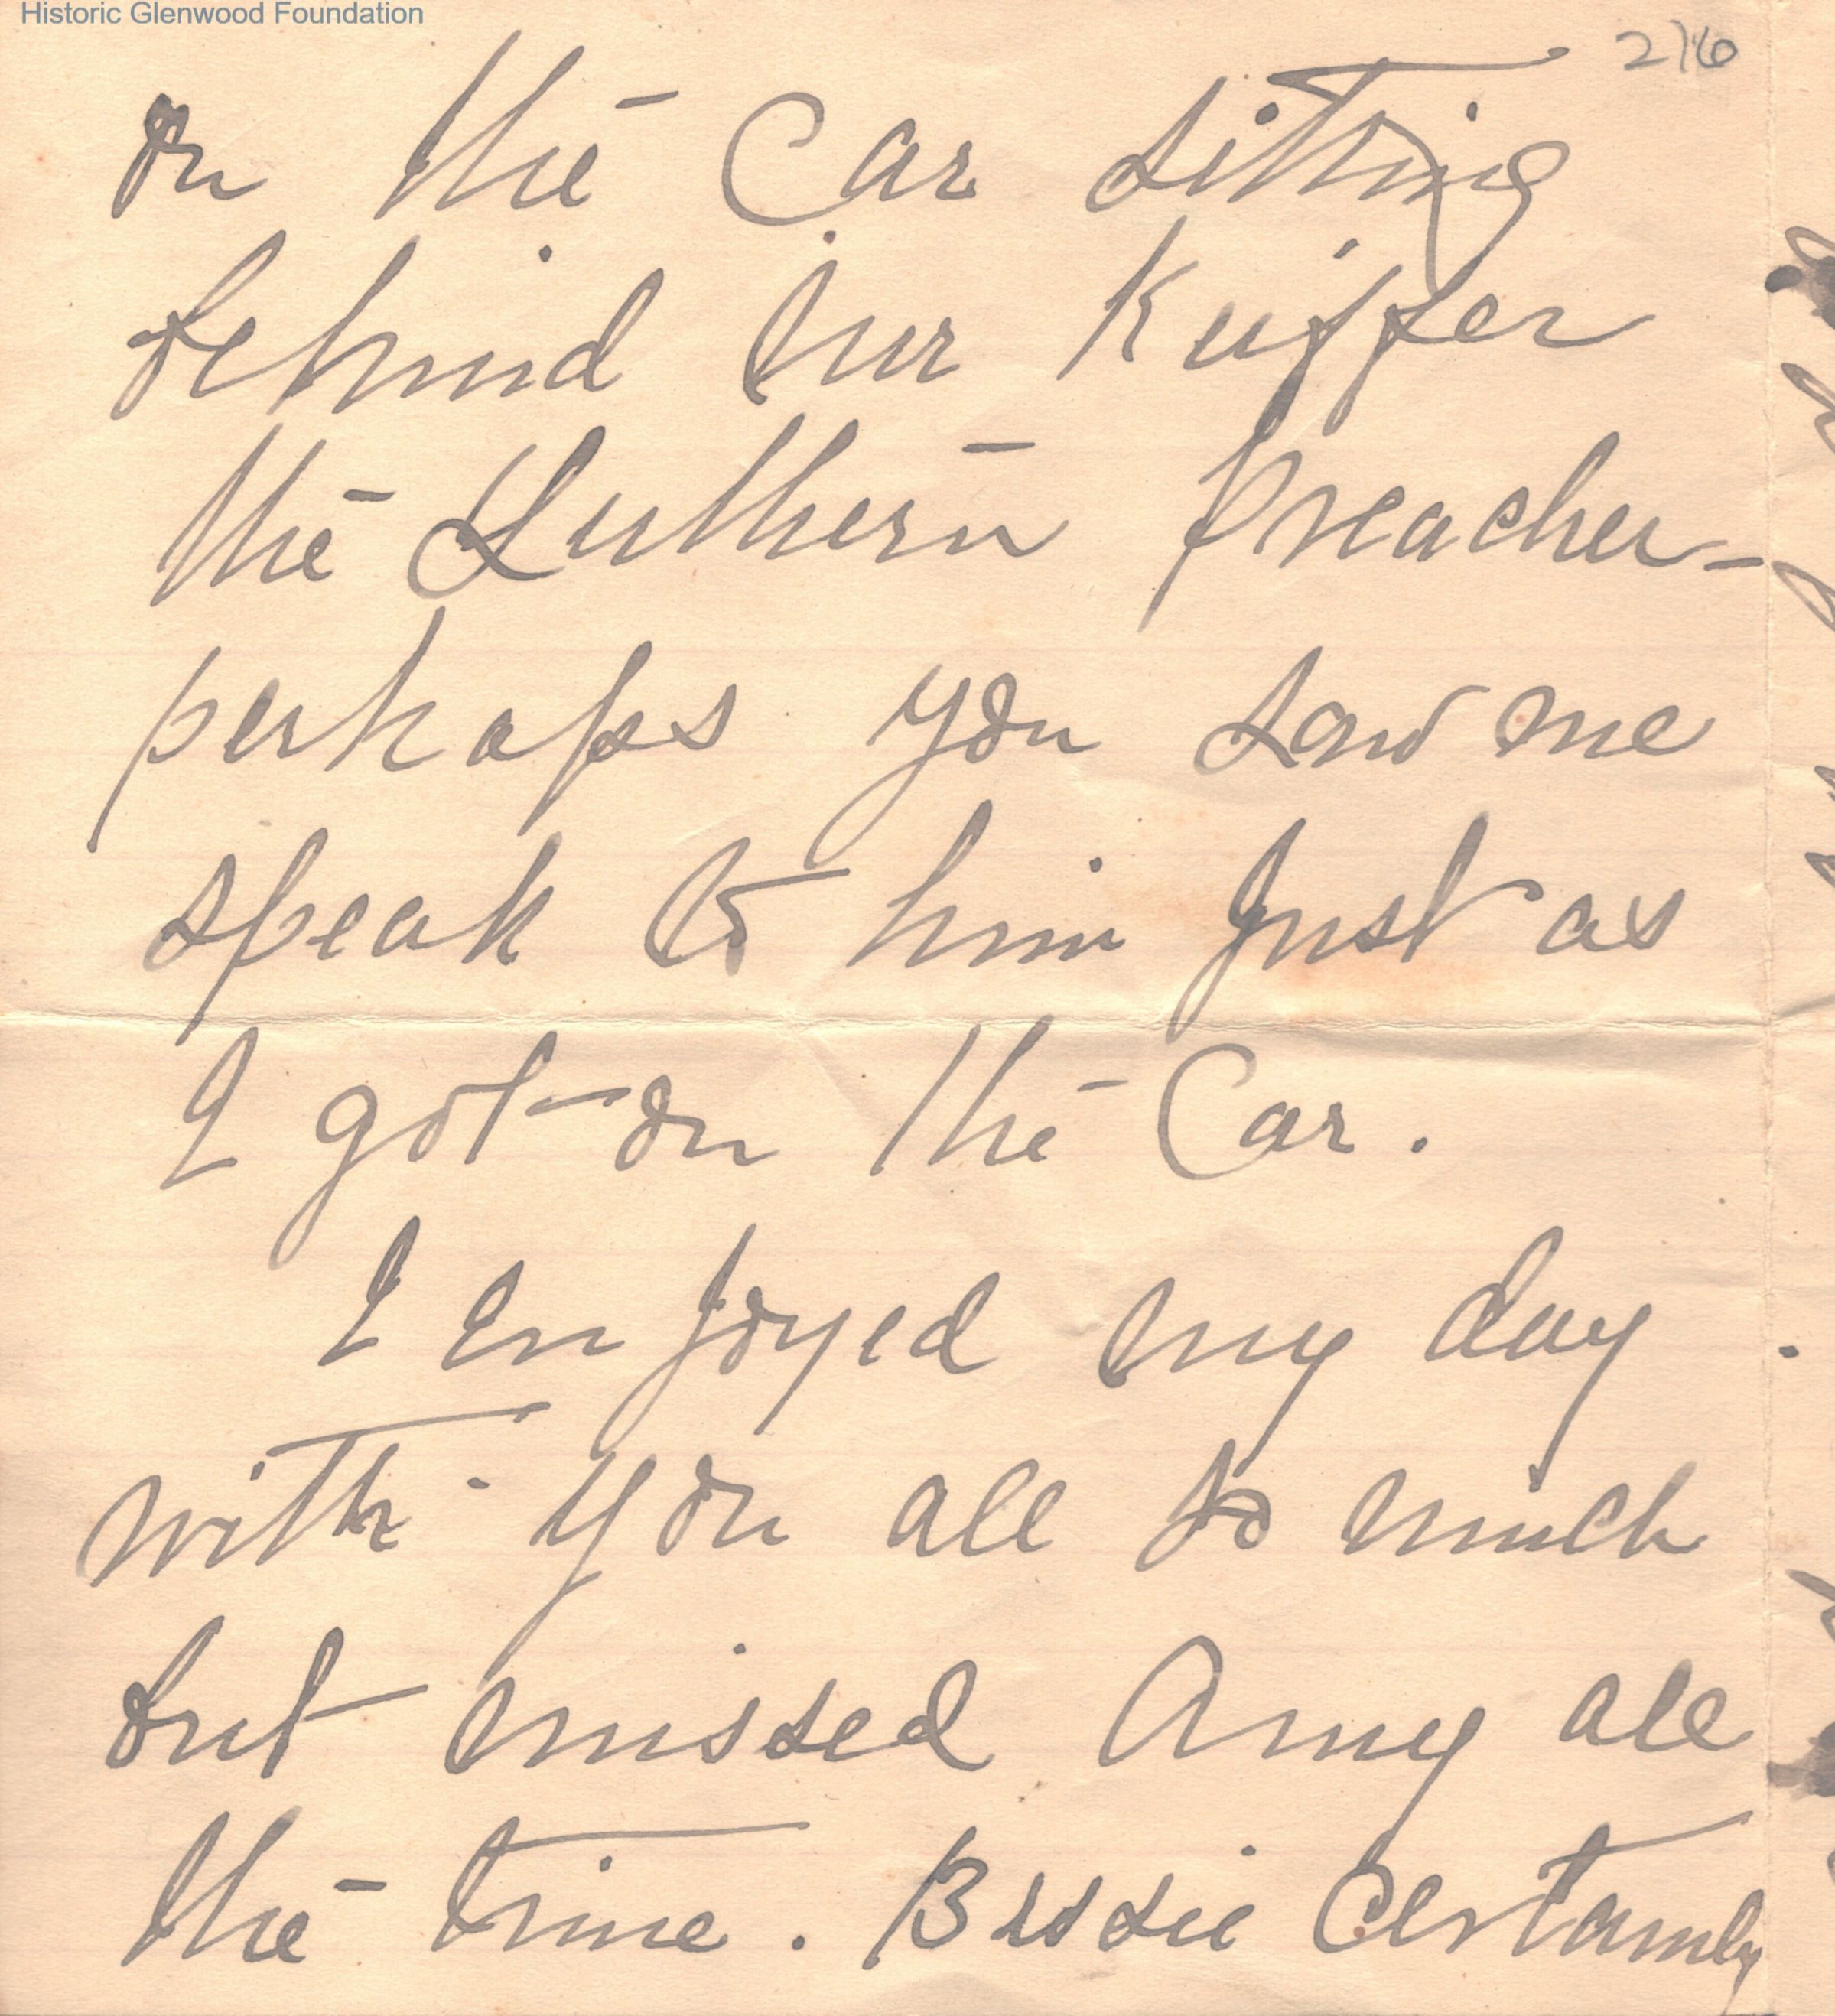 Historic Glenwood Foundation
2/6
on the Car sitting
behind Mr Keiffer
the Luthern Preacher-
perhaps you saw me
speak to him just as
I got on the Car.
I enjoyed my day
with you all so much
but missed Amy all
the time. Bessie Certainly